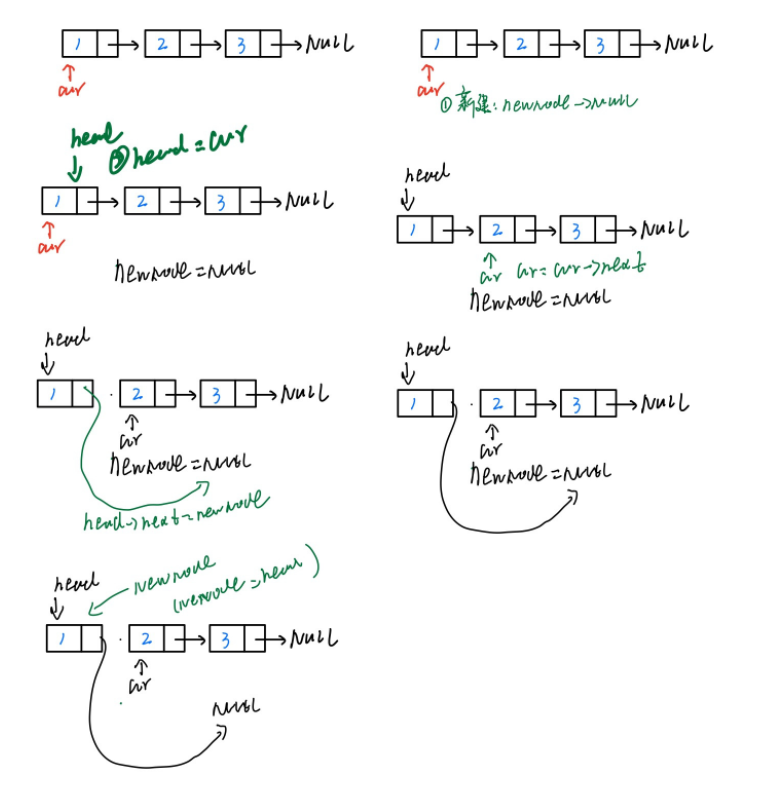 1 2 3 NULL
cur
1 2 3 NULL
cur
① 新建: newnode → NULL
head
② head = cur
1 2 3 NULL
cur
newnode = NULL
head
1 2 3 NULL
cur cur = cur → next
newnode = NULL
head
1 2 3 NULL
cur
newnode = NULL
head → next = newnode
head
1 2 3 NULL
cur
newnode = NULL
head
newnode
(newnode = head)
1 2 3 NULL
cur
NULL